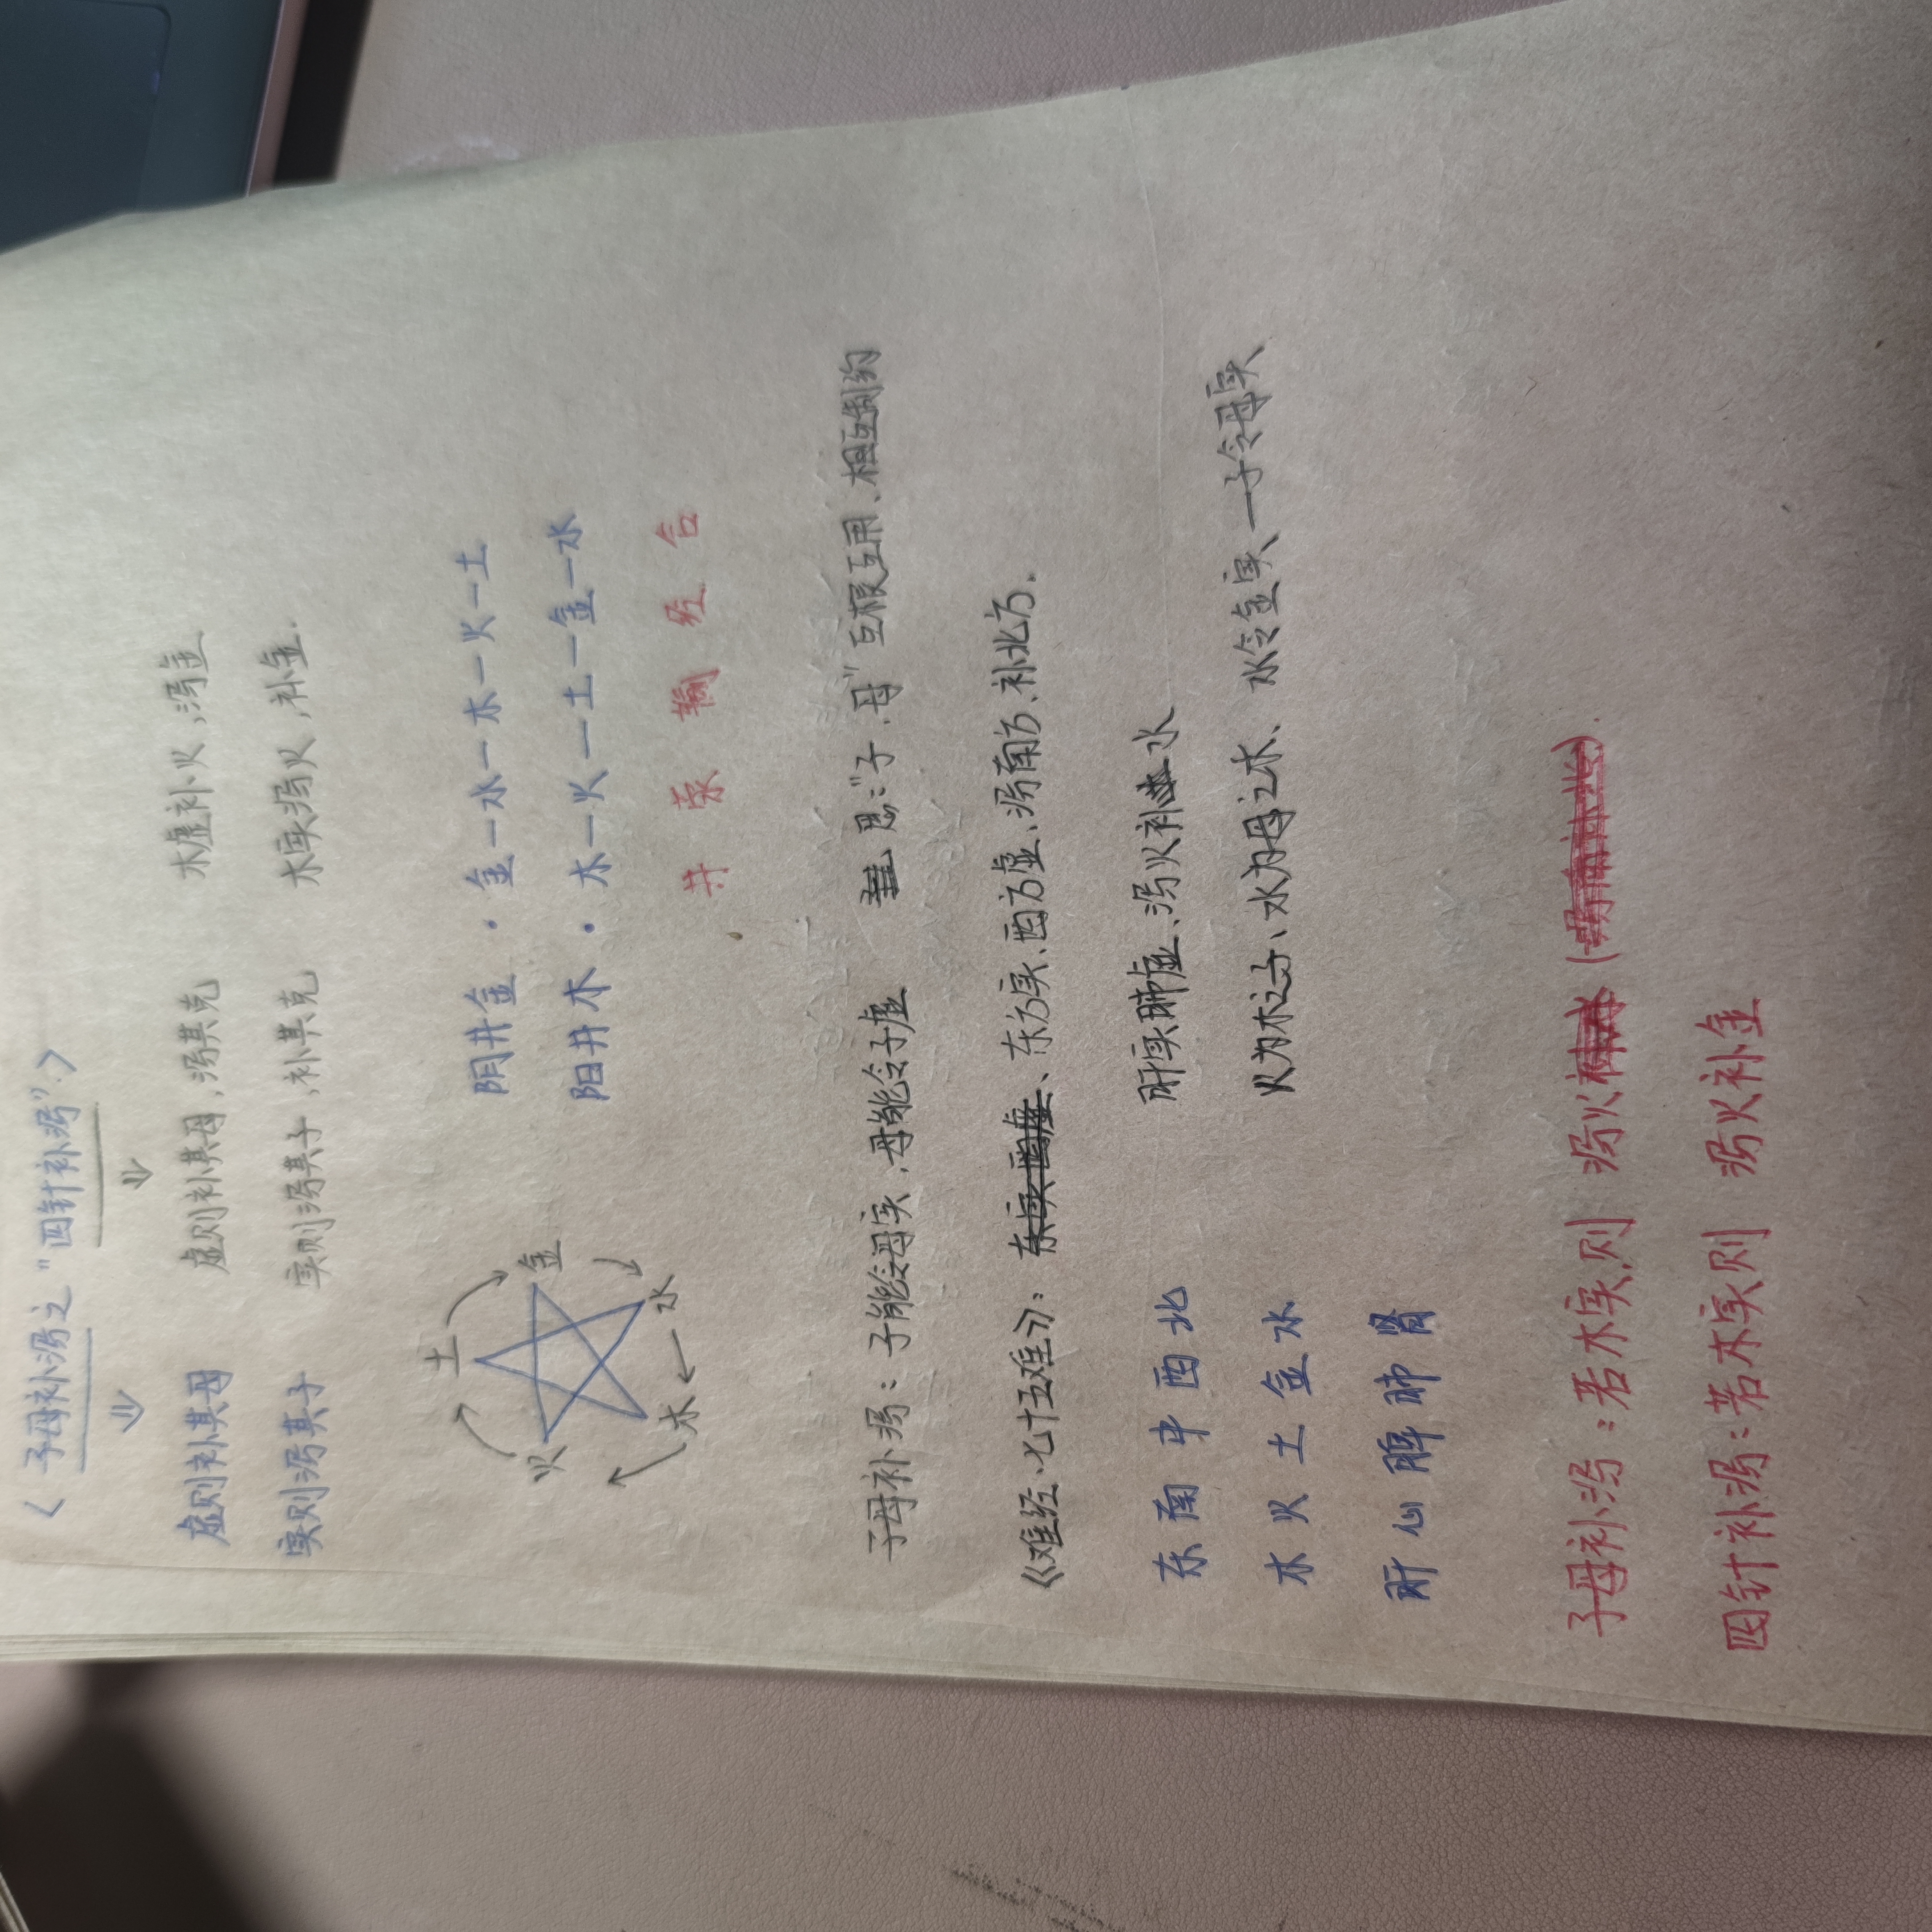 〈子母补泻之"四针补泻"〉
⇓ ⇓
虚则补其母 虚则补其母，泻其克 木虚补火，泻金
实则泻其子 实则泻其子，补其克 木实泻火，补金.
土
火 金
木 水
阴井金 · 金—水—木—火—土
阳井木 · 木—火—土—金—水
井 荥 输 经 合
子母补泻：子能令母实，母能令子虚 思："子，母"互根互用、相互制约
《难经·七十五难》：、东方实、西方虚、泻南方、补北方.
东 南 中 西 北 肝实肺虚、泻火补水
木 火 土 金 水 火为木之子、水为母之木、水令金实、—子令母实
肝 心 脾 肺 肾
子母补泻：若木实则 泻火
四针补泻：若木实则 泻火补金